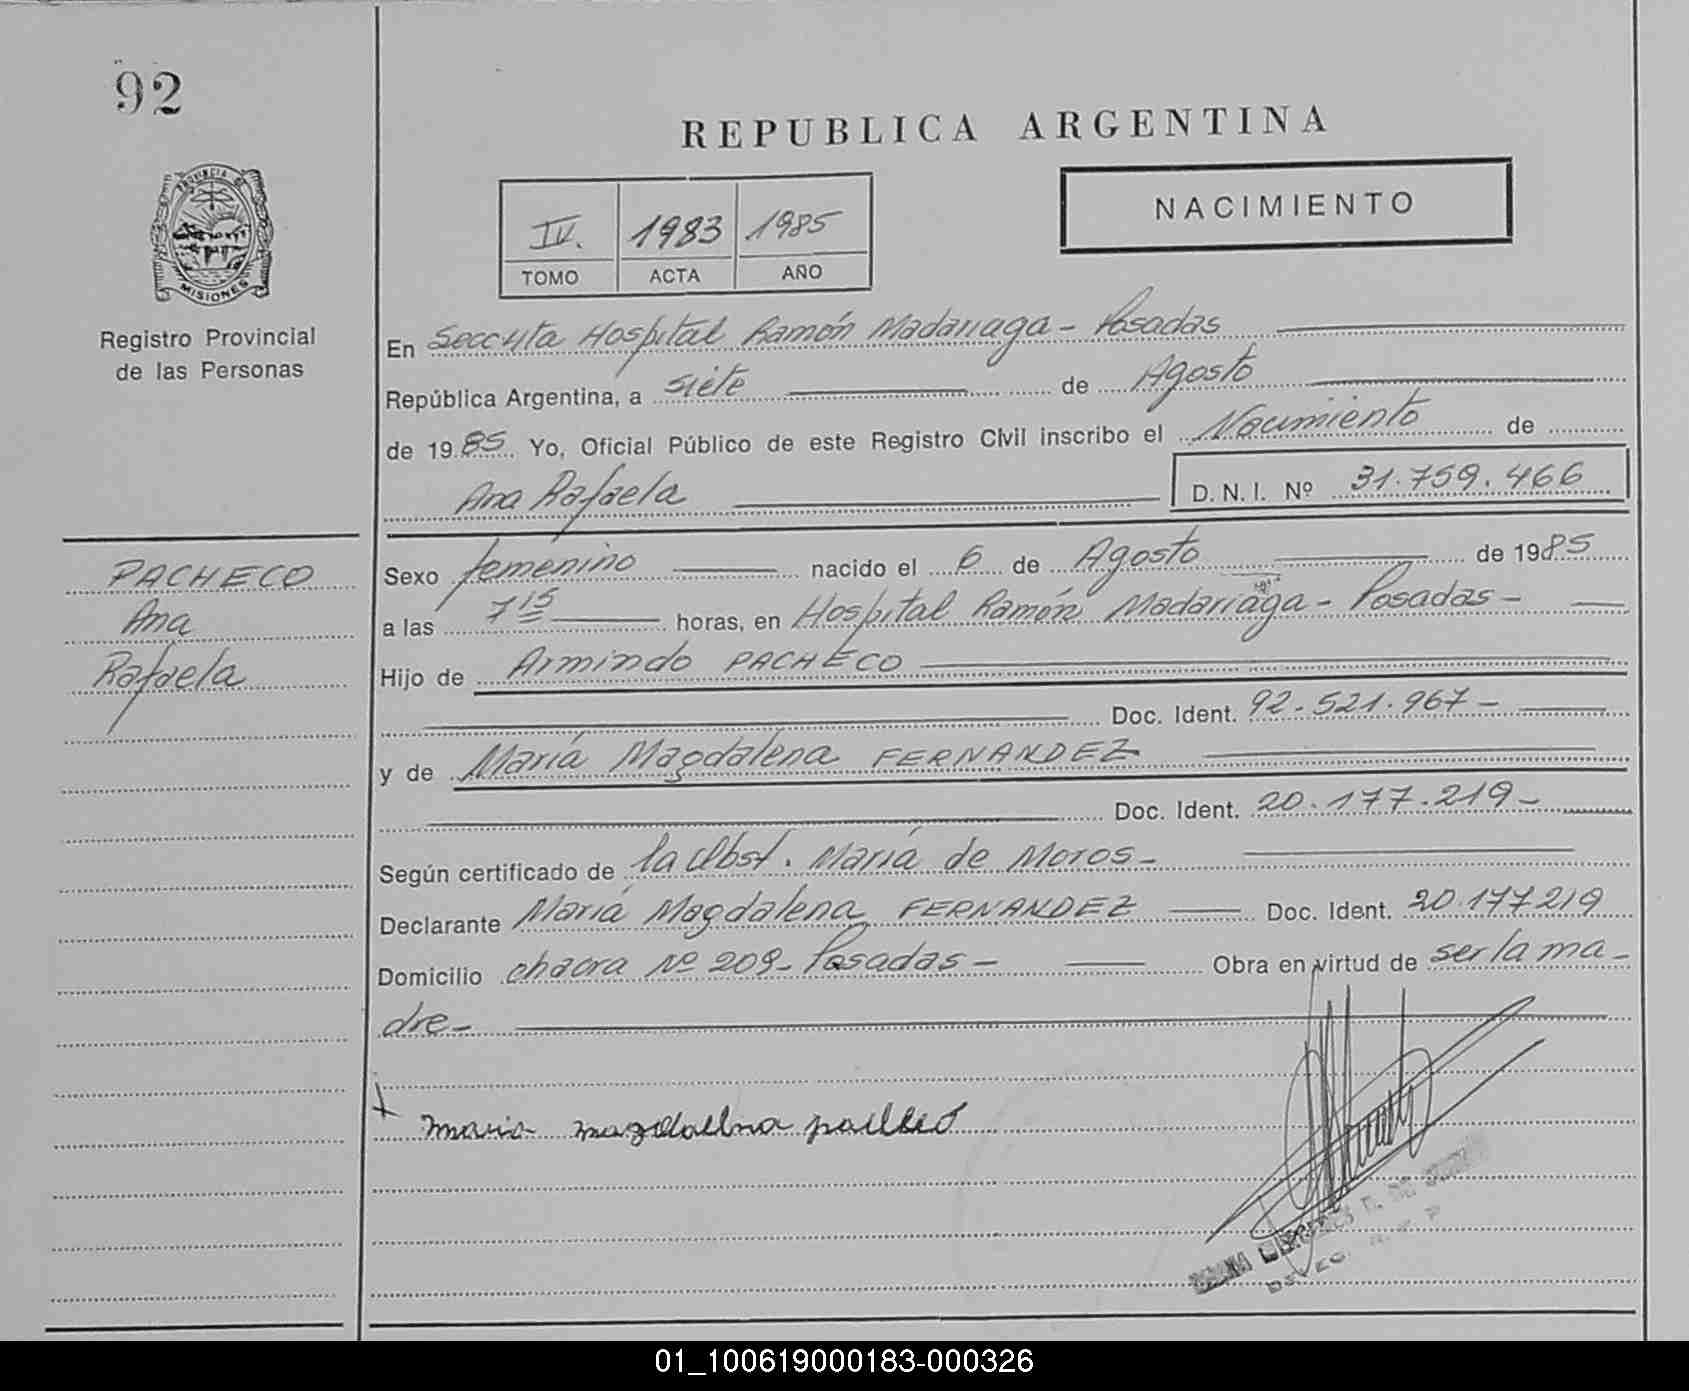 92
PROVINCIA DE
MISIONES
Registro Provincial
de las Personas
PACHECO
Ana
Rafaela
REPUBLICA ARGENTINA
IV. 1983 1985
TOMO ACTA AÑO
NACIMIENTO
En Hospital Ramón Madariaga - Posadas
República Argentina, a siete de Agosto
de 1985. Yo, Oficial Público de este Registro Civil inscribo el Nacimiento de
Ana Rafaela D. N. I. Nº 31.759.466
Sexo femenino nacido el 6 de Agosto de 1985
a las 7 15 horas, en Hospital Ramón Madariaga - Posadas -
Hijo de Armindo PACHECO
Doc. Ident. 92.521.967 -
y de María Magdalena FERNANDEZ
Doc. Ident. 20.177.219 -
Según certificado de la Obst. María de Moros -
Declarante María Magdalena FERNANDEZ Doc. Ident. 20.177.219
Domicilio chacra Nº 209 - Posadas - Obra en virtud de ser la ma -
dre -
maria
01_100619000183-000326